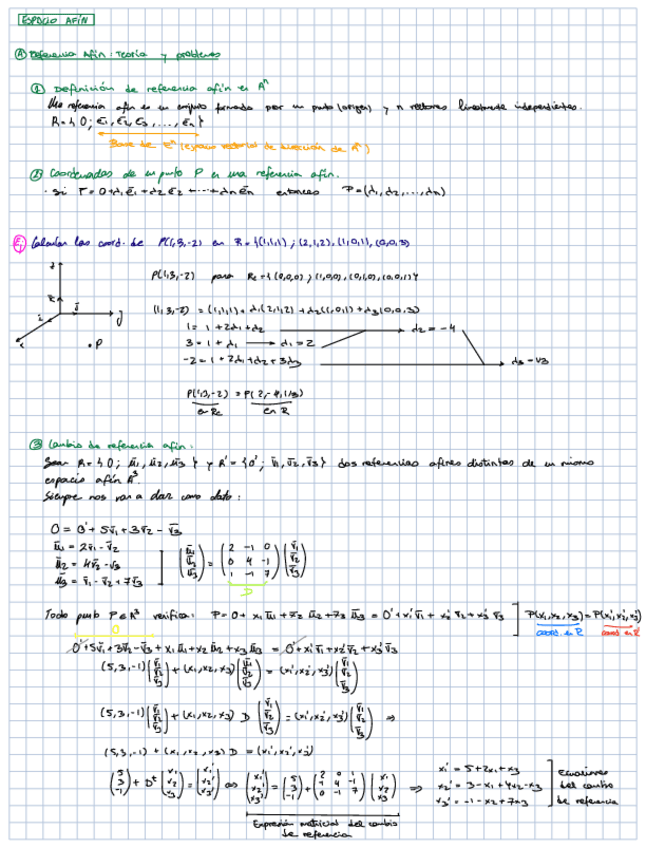 ESPACIO AFÍN
Ⓐ Referencia Afín: Teoría y problemas
① Definición de referencia afín en Aⁿ
Una referencia afín es un conjunto formado por un punto (origen) y n vectores linealmente independientes.
R = { O ; ē₁, ē₂, ē₃, ..., ēₙ }
Base de Eⁿ (espacio vectorial de dirección de Aⁿ)
② Coordenadas de un punto P en una referencia afín.
· Si P = O + λ₁ē₁ + λ₂ē₂ + ... + λₙēₙ entonces P = (λ₁, λ₂, ..., λₙ)
Ej Calcular las coord. de P(1,3,-2) en R = {(1,1,1) ; (2,1,2), (1,0,1), (0,0,3)
z
P(1,3,-2) para Rc = { (0,0,0) ; (1,0,0), (0,1,0), (0,0,1) }
k
j y
i
x
• P
(1,3,-2) = (1,1,1) + λ₁(2,1,2) + λ₂(1,0,1) + λ₃(0,0,3)
1 = 1 + 2λ₁ + λ₂ → λ₂ = -4
3 = 1 + λ₁ → λ₁ = 2
-2 = 1 + 2λ₁ + λ₂ + 3λ₃ → λ₃ = -1/3
P(1,3,-2) = P(2,-4,-1/3)
en Rc en R
③ Cambio de referencia afín:
Sean R = { O ; ū₁, ū₂, ū₃ } y R' = { O' ; v̄₁, v̄₂, v̄₃ } dos referencias afines distintas de un mismo
espacio afín A³
Siempre nos van a dar como dato :
O = O' + 5v̄₁ + 3v̄₂ - v̄₃
ū₁ = 2v̄₁ - v̄₂
ū₂ = 4v̄₂ - v̄₃
ū₃ = v̄₁ - v̄₂ + 7v̄₃
(ū₁ ū₂ ū₃) = (2 -1 0 / 0 4 -1 / 1 -1 7) (v̄₁ v̄₂ v̄₃)
D
Todo punto P ∈ A³ verifica: P = O + x₁ū₁ + x₂ū₂ + x₃ū₃ = O' + x₁'v̄₁ + x₂'v̄₂ + x₃'v̄₃ ] P(x₁,x₂,x₃) = P(x₁',x₂',x₃')
O coord. en R coord en R'
O' + 5v̄₁ + 3v̄₂ - v̄₃ + x₁ū₁ + x₂ū₂ + x₃ū₃ = O' + x₁'v̄₁ + x₂'v̄₂ + x₃'v̄₃
(5,3,-1) (v̄₁ v̄₂ v̄₃) + (x₁,x₂,x₃) (ū₁ ū₂ ū₃) = (x₁',x₂',x₃') (v̄₁ v̄₂ v̄₃)
(5,3,-1) (v̄₁ v̄₂ v̄₃) + (x₁,x₂,x₃) D (v̄₁ v̄₂ v̄₃) = (x₁',x₂',x₃') (v̄₁ v̄₂ v̄₃) ⇒
(5,3,-1) + (x₁,x₂,x₃) D = (x₁',x₂',x₃')
(5 3 -1) + Dᵗ (x₁ x₂ x₃) = (x₁' x₂' x₃') ⇔ (x₁' x₂' x₃') = (5 3 -1) + (2 0 1 / -1 4 -1 / 0 -1 7) (x₁ x₂ x₃) ⇒
x₁' = 5 + 2x₁ + x₃
x₂' = 3 - x₁ + 4x₂ - x₃
x₃' = -1 - x₂ + 7x₃
Ecuaciones
del cambio
de referencia
Expresión matricial del cambio
de referencia